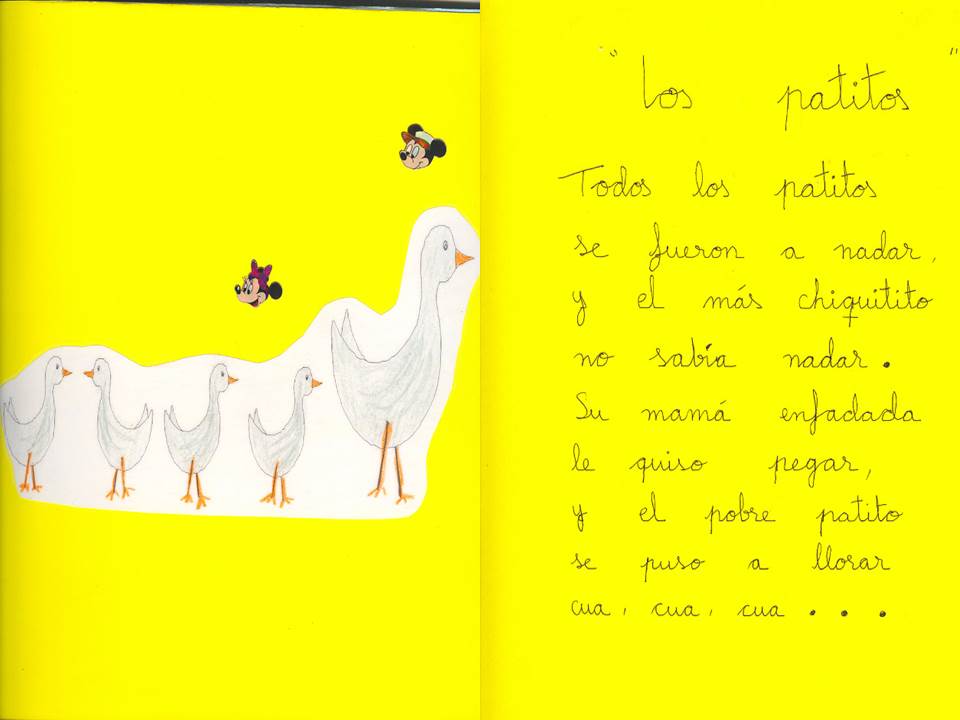 "Los patitos"
Todos los patitos
se fueron a nadar,
y el más chiquitito
no sabía nadar.
Su mamá enfadada
le quiso pegar,
y el pobre patito
se puso a llorar
cua, cua, cua...